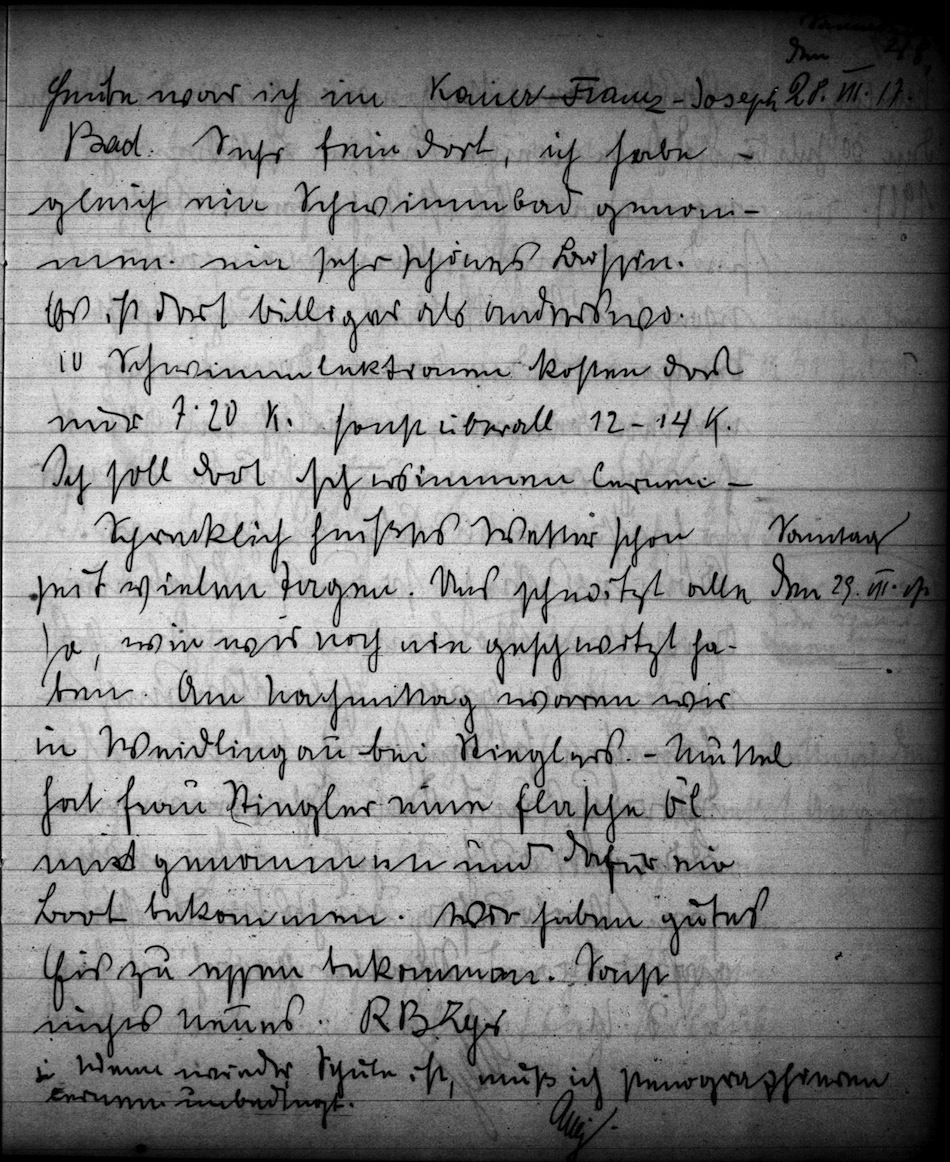 den
Heute war ich im Kaiser-Franz-Joseph 28. VII. 17.
Bad. Sehr fein dort, ich habe -
gleich ein Schwimmbad genom-
men. ein sehr schönes Bassin.
Es ist dort billiger als anderswo.
10 Schwimmlektionen kosten dort
nur 7·20 K. sonst überall 12-14 K.
Ich soll dort schwimmen lernen -
Schrecklich heißes Wetter schon Sonntag
seit vielen Tagen. Uns schwitzt alle den 29. VII.
so, wie wir noch nie geschwitzt ha-
ben. Am Nachmittag waren wir
in Weidlingau bei Stinglers. - Muttel
hat Frau Stingler eine Flasche Öl
mit genommen und dafür ein
Brot bekommen. Wir haben gutes
Eis zu essen bekommen. Sonst
nichts neues.
Wenn wieder Schule ist, muß ich stenographieren
lernen unbedingt.